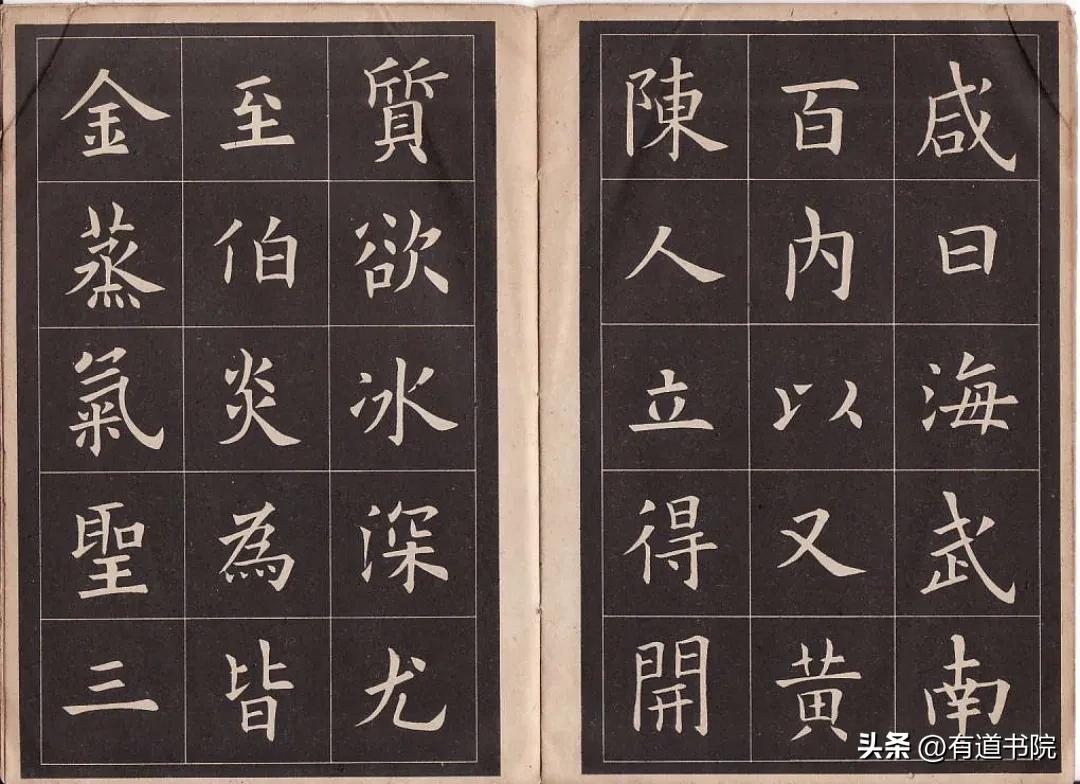 咸曰海武南
百内以又黄
陳人立得開
質欲冰深尤
至伯炎為皆
金蒸氣聖三
头条 @有道书院